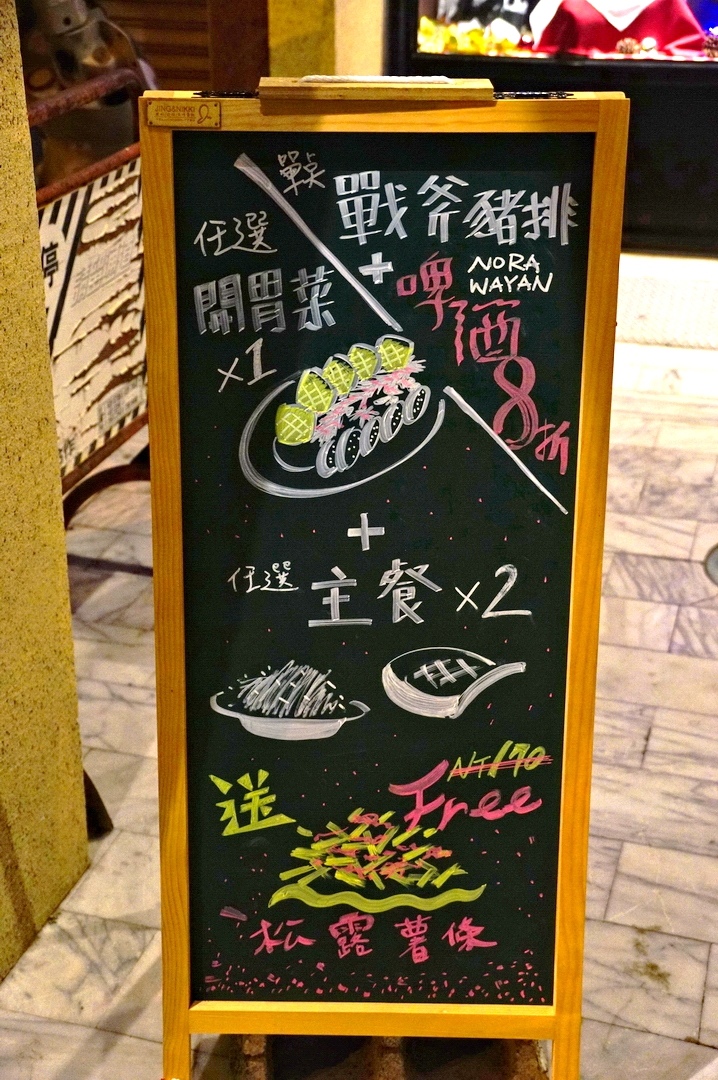 JING&NIKKI
單点
戰斧豬排
任選
開胃菜
x1
+
NORA
WAYAN
啤酒
8折
+
任選 主餐 x2
NT170
送 Free
松露薯條
停